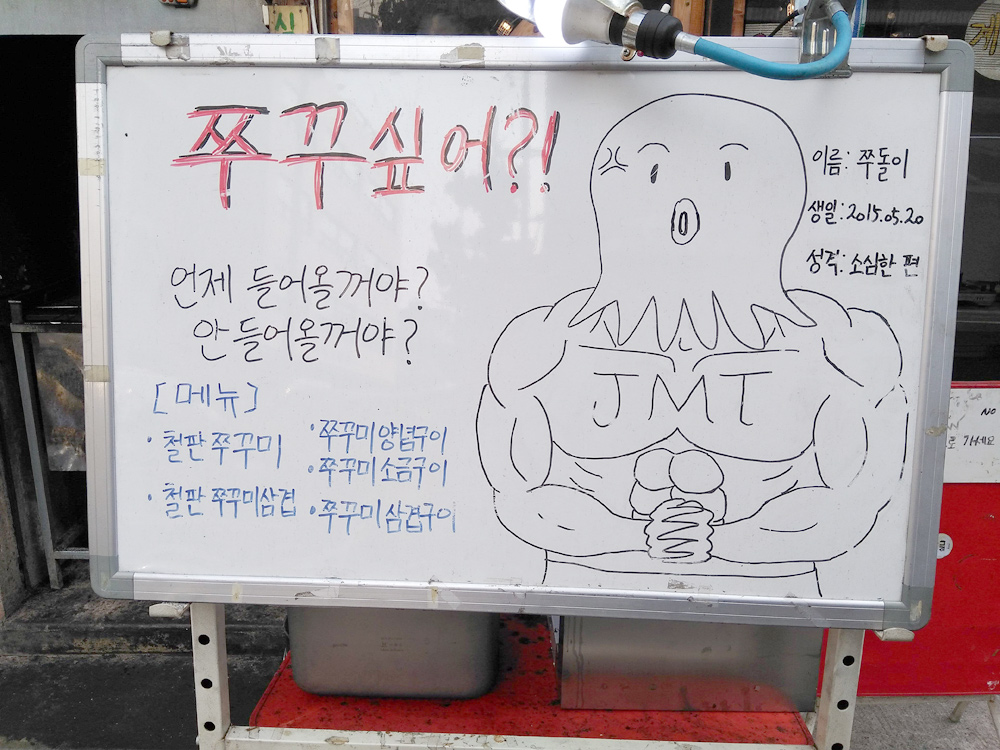 쭈꾸싶어?!
언제 들어올꺼야?
안들어올꺼야?
[메뉴]
· 철판 쭈꾸미
· 철판 쭈꾸미삼겹
· 쭈꾸미양념구이
· 쭈꾸미소금구이
· 쭈꾸미삼겹구이
이름: 쭈돌이
생일: 2015.05.20
성격: 소심한 편
JMT
식
NO
가세요